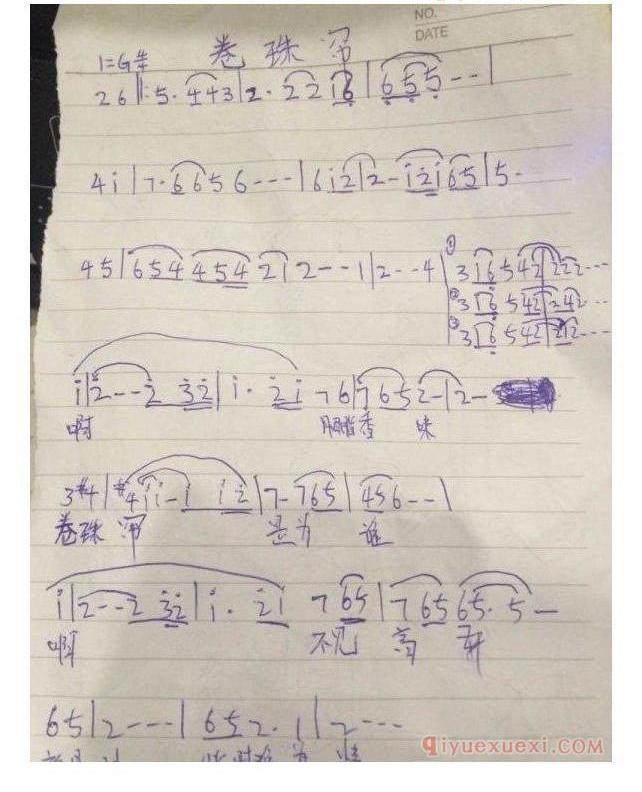 NO.
DATE
卷珠帘
1=G 4/4
2 6 ‖: 5· 4 4 3 | 2· 2 2 1 6 | 6 5 5 - - |
4 i | 7· 6 6 5 6 - - - | 6 i 2 | 2 - i 2 i 6 5 | 5 -
4 5 | 6 5 4 4 5 4 2 1 2 - - 1 | 2 - - 4 | ① 3 1 6 5 4 2 | 2 2 2 - - -
② 3 1 6 5 4 2 | 2 4 2 - - -
③ 3 1 6 5 4 2 | 2 1 2 - - -
i | 2 - - 2 3 2 | i · 2 i 7 6 | 7 6 5 2 - | 2 -
啊 胭脂香 味
3 #4 | #4 i i - i i 2 | 7 - 7 6 5 | 4 5 6 - - |
卷珠帘 是为 谁
i | 2 - - 2 3 2 | i · 2 i 7 6 5 | 7 6 5 6 5 · 5 -
啊 不见 高 轩
6 5 | 2 - - - | 6 5 2 · 1 | 2 - - -
qiyuexuexi.COM